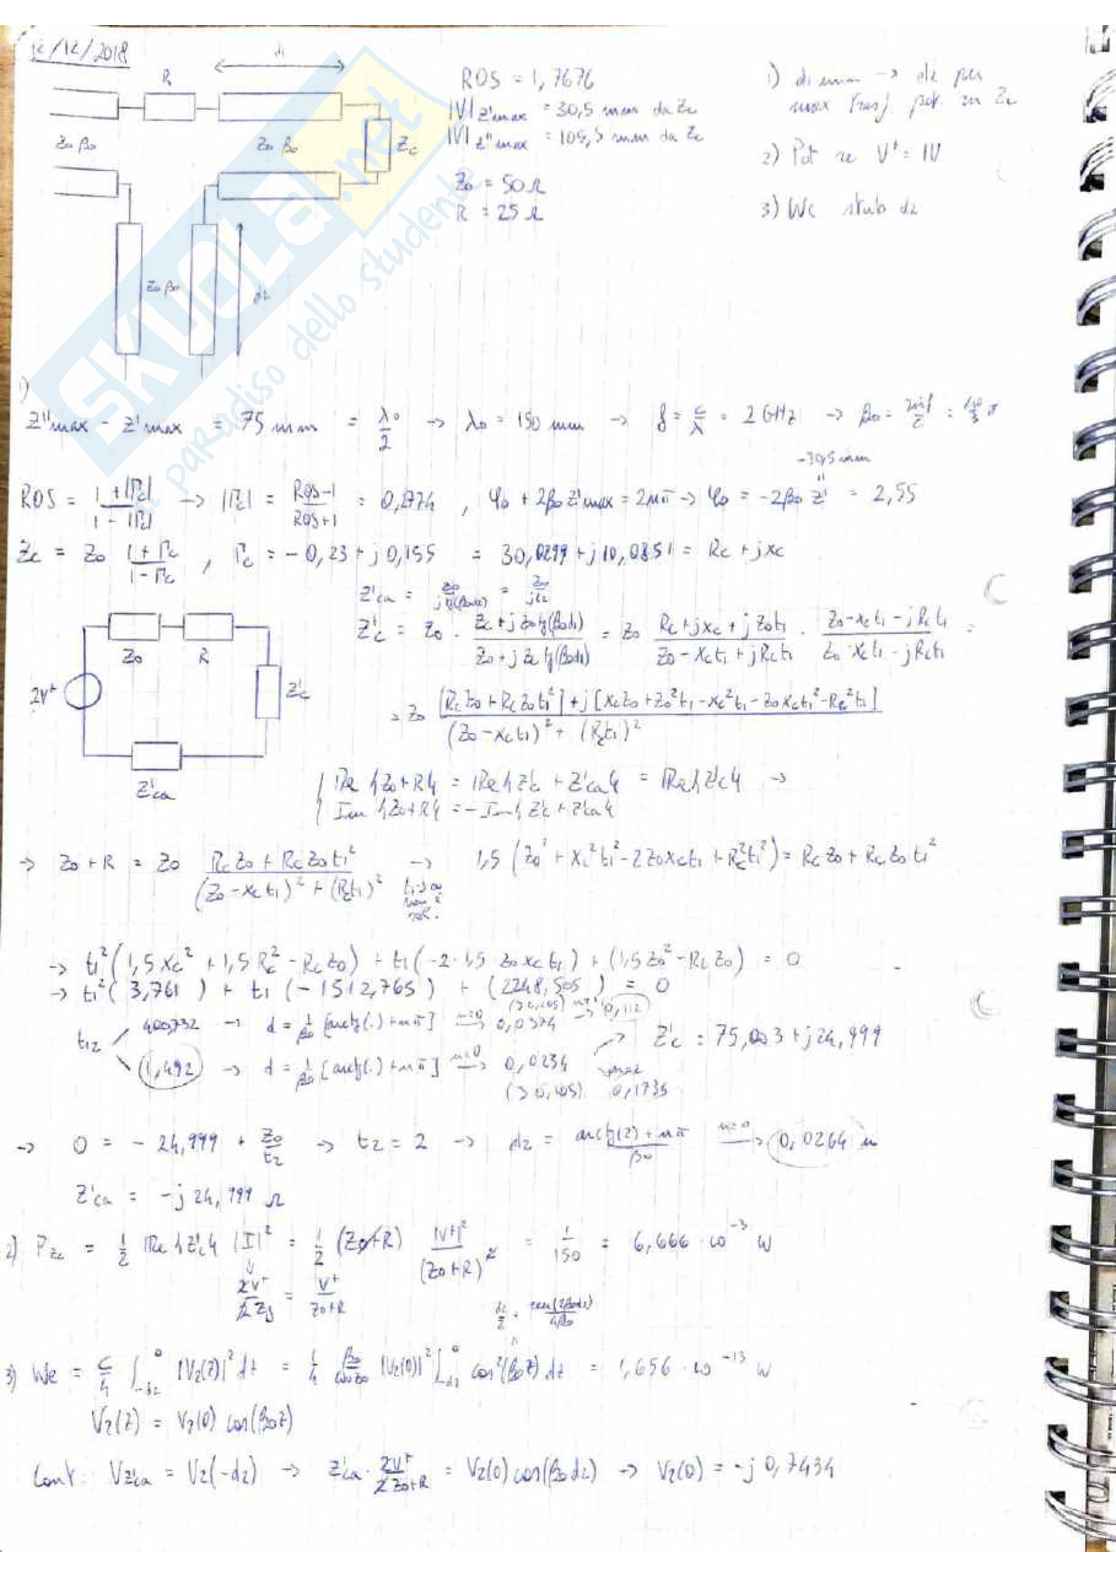 12/12/2018
R
d1
Z0 β0
Z0 β0
Zc
Z0 β0
d2
ROS = 1,7676
|V|z'max = 30,5 mm da Zc
|V|z''max = 105,5 mm da Zc
Z0 = 50 Ω
R = 25 Ω
1) d1 min → d2 per
max trasf. pot. su Zc
2) Pot se V+ = 1V
3) We stub d2
SKUOLA.net
il paradiso dello studente
1)
z''max - z'max = 75 mm = λ0/2 → λ0 = 150 mm → f = c/λ = 2 GHz → β0 = 2πf/c = 40/3 π
-30,5 mm
ROS = (1+|Γc|)/(1-|Γc|) → |Γc| = (ROS-1)/(ROS+1) = 0,2774 , φ0 + 2β0 z'max = 2nπ → φ0 = -2β0 z' = 2,55
Zc = Z0 (1+Γc)/(1-Γc) , Γc = -0,23 + j0,155 = 30,0299 + j10,0851 = Rc + jxc
Z'ca = Z0/(j tg(β0d2)) = Z0/(jt2)
Z'c = Z0 · (Zc + jZ0tg(β0d1))/(Z0 + jZc tg(β0d1)) = Z0 (Rc + jxc + jZ0t1)/(Z0 - xct1 + jRct1) · (Z0 - xct1 - jRct1)/(Z0 - xct1 - jRct1) =
= Z0 ([RcZ0 + RcZ0t1²] + j[xcZ0 + Z0²t1 - xc²t1 - Z0xct1² - Rc²t1])/((Z0 - xct1)² + (Rct1)²
Z0
R
2V+
Z'c
Z'ca
{ Re{Z0+R} = Re{Z'c + Z'ca} = Re{Z'c} →
Im{Z0+R} = -Im{Z'c + Z'ca}
→ Z0 + R = Z0 (RcZ0 + RcZ0t1²)/((Z0 - xct1)² + (Rct1)²) → 1,5 (Z0² + xc²t1² - 2Z0xct1 + Rc²t1²) = RcZ0 + RcZ0t1²
t1→∞
non è
sol.
→ t1² (1,5xc² + 1,5Rc² - RcZ0) + t1(-2·1,5 Z0xct1) + (1,5Z0² - RcZ0) = 0
→ t1² (3,761) + t1 (-1512,765) + (2248,505) = 0
t12
400,732 → d = 1/β0 [arctg(.) + nπ] n=0 → 0,0374 → 0,112
(1,492) → d = 1/β0 [arctg(.) + nπ] n=0 → 0,0234
0,1735
Z'c = 75,003 + j24,999
→ 0 = -24,999 + Z0/t2 → t2 = 2 → d2 = (arctg(2) + nπ)/β0 n=0 → 0,0264 m
Z'ca = -j24,999 Ω
2) Pzc = 1/2 Re{Z'c} |I|² = 1/2 (Z0+R) |V+|²/(Z0+R)² = 1/150 = 6,666 · 10⁻³ W
2V+/2Zg = V+/(Z0+R)
d2/2 + sen(2β0d2)/4β0
3) We = C/4 ∫-d2^0 |V2(z)|² dz = 1/4 β0/(ω0Z0) |V2(0)|² ∫-d2^0 cos²(β0z) dz = 1,656 · 10⁻¹³ W
V2(z) = V2(0) cos(β0z)
Cont: Vz'ca = V2(-d2) → Z'ca · 2V+/(2 Z0+R) = V2(0) cos(β0d2) → V2(0) = -j0,7434